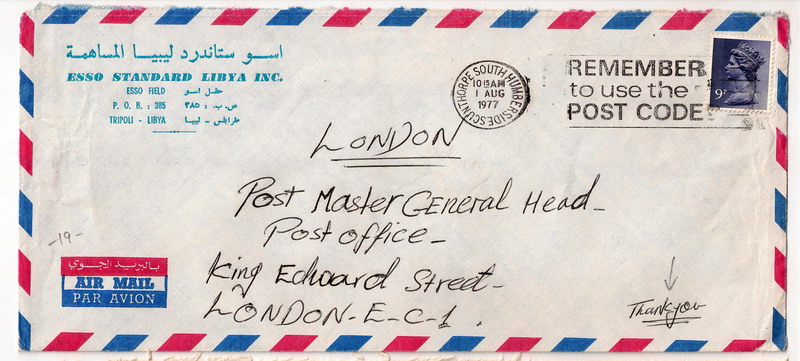 اسو ستاندرد ليبيا المساهمة
ESSO STANDARD LIBYA INC.
ESSO FIELD حقل اسو
P. O. B. : 385 ص. ب. : ٣٨٥
TRIPOLI - LIBYA طرابلس - ليبيا
SCUNTHORPE SOUTH HUMBERSIDE
10 15 AM
1 AUG
1977
REMEMBER
to use the
POST CODE
9P
LONDON
Post Master General Head-
Post office-
King Edward Street-
LONDON-E-C-1.
-19-
بالبريد الجوي
AIR MAIL
PAR AVION
Thank you